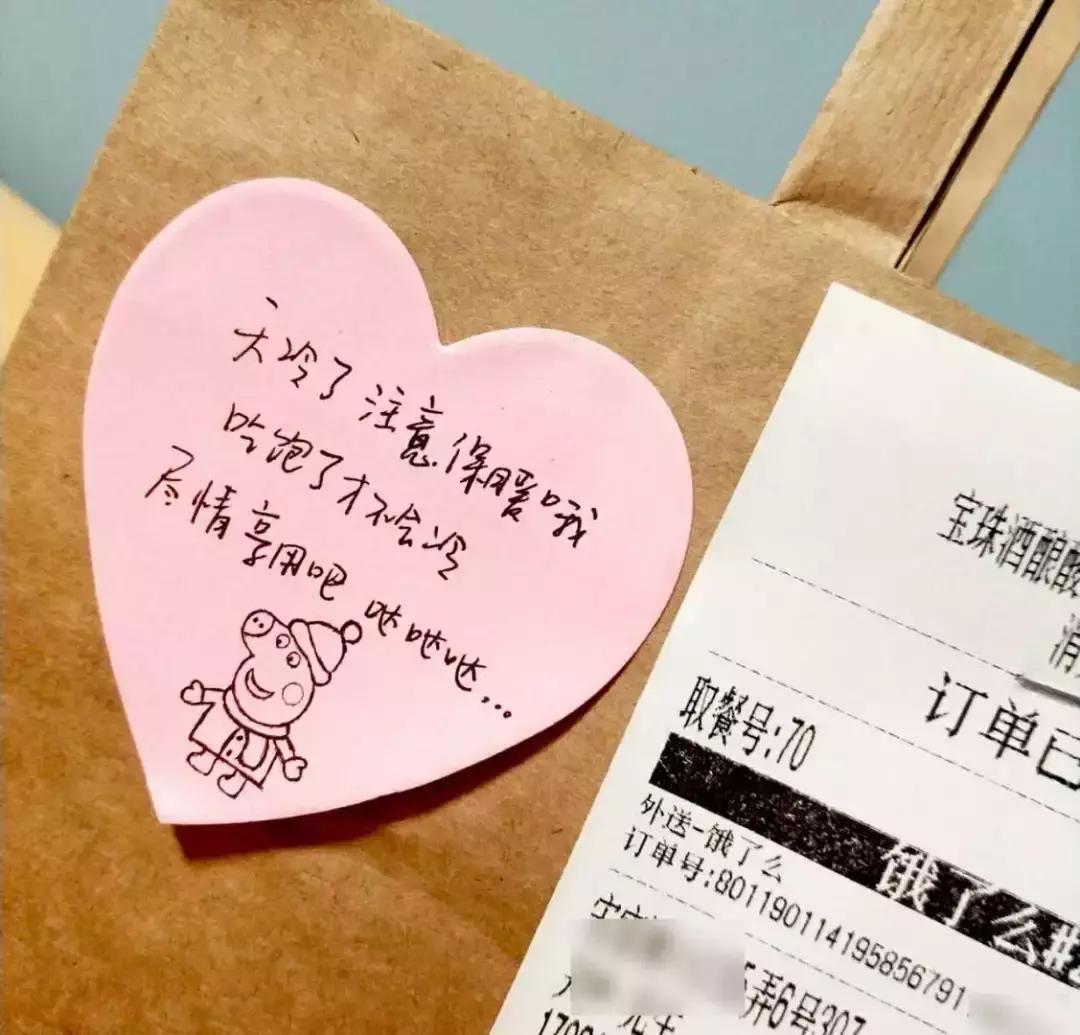 天冷了 注意保暖哦
吃饱了才不会冷
尽情享用吧 哒哒哒...
宝珠酒酿酸
订单已
取餐号:70
饿了么#
外送-饿了么
订单号:801190114195856791
弄6号307